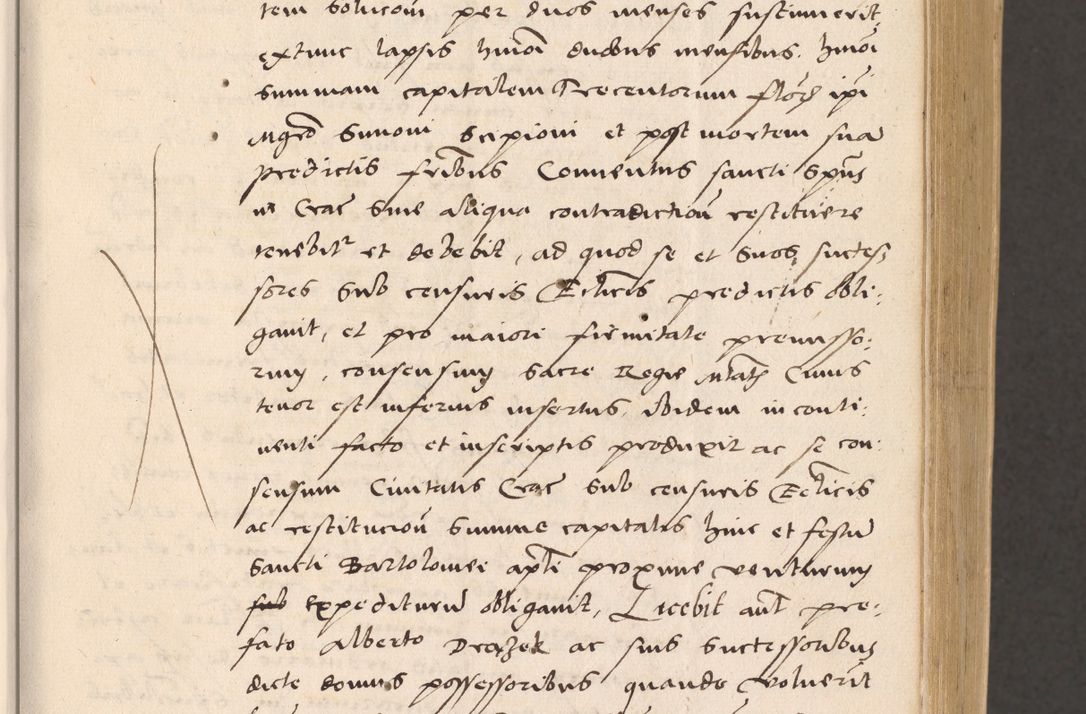 tem Soluconi per duos menses sustinuerit,
extunc lapsis hmoi duobus mensibus. hmoi
summam capitalem Trecentorum flor ipi
Mgro Simoni Scipioni et post mortem sua
predictis fribus Conuentus sancti Spus
in Crac sine aliqua contradiction restituere
tenebitr et debebit, ad quod se et suos succes,
sores sub censuris Ecclicis predictis obli,
gauit, et pro maiori firmitate premisso,
rum, consensum Sacre Regie Mtatis Cuius
tenor est inferius insertus, ibidem in conti,
nenti facto et inscriptis produxit ac se con,
sensum Ciuitatis Crac sub censuris Ecclicis
ac restitucion summe capitalis hinc et festu
Sancti Bartolomei apli proxime venturum
sub expediturum obligauit, Licebit aut pre,
fato Alberto Drozek ac suis successoribus
dicte domus possessoribus quando voluerit